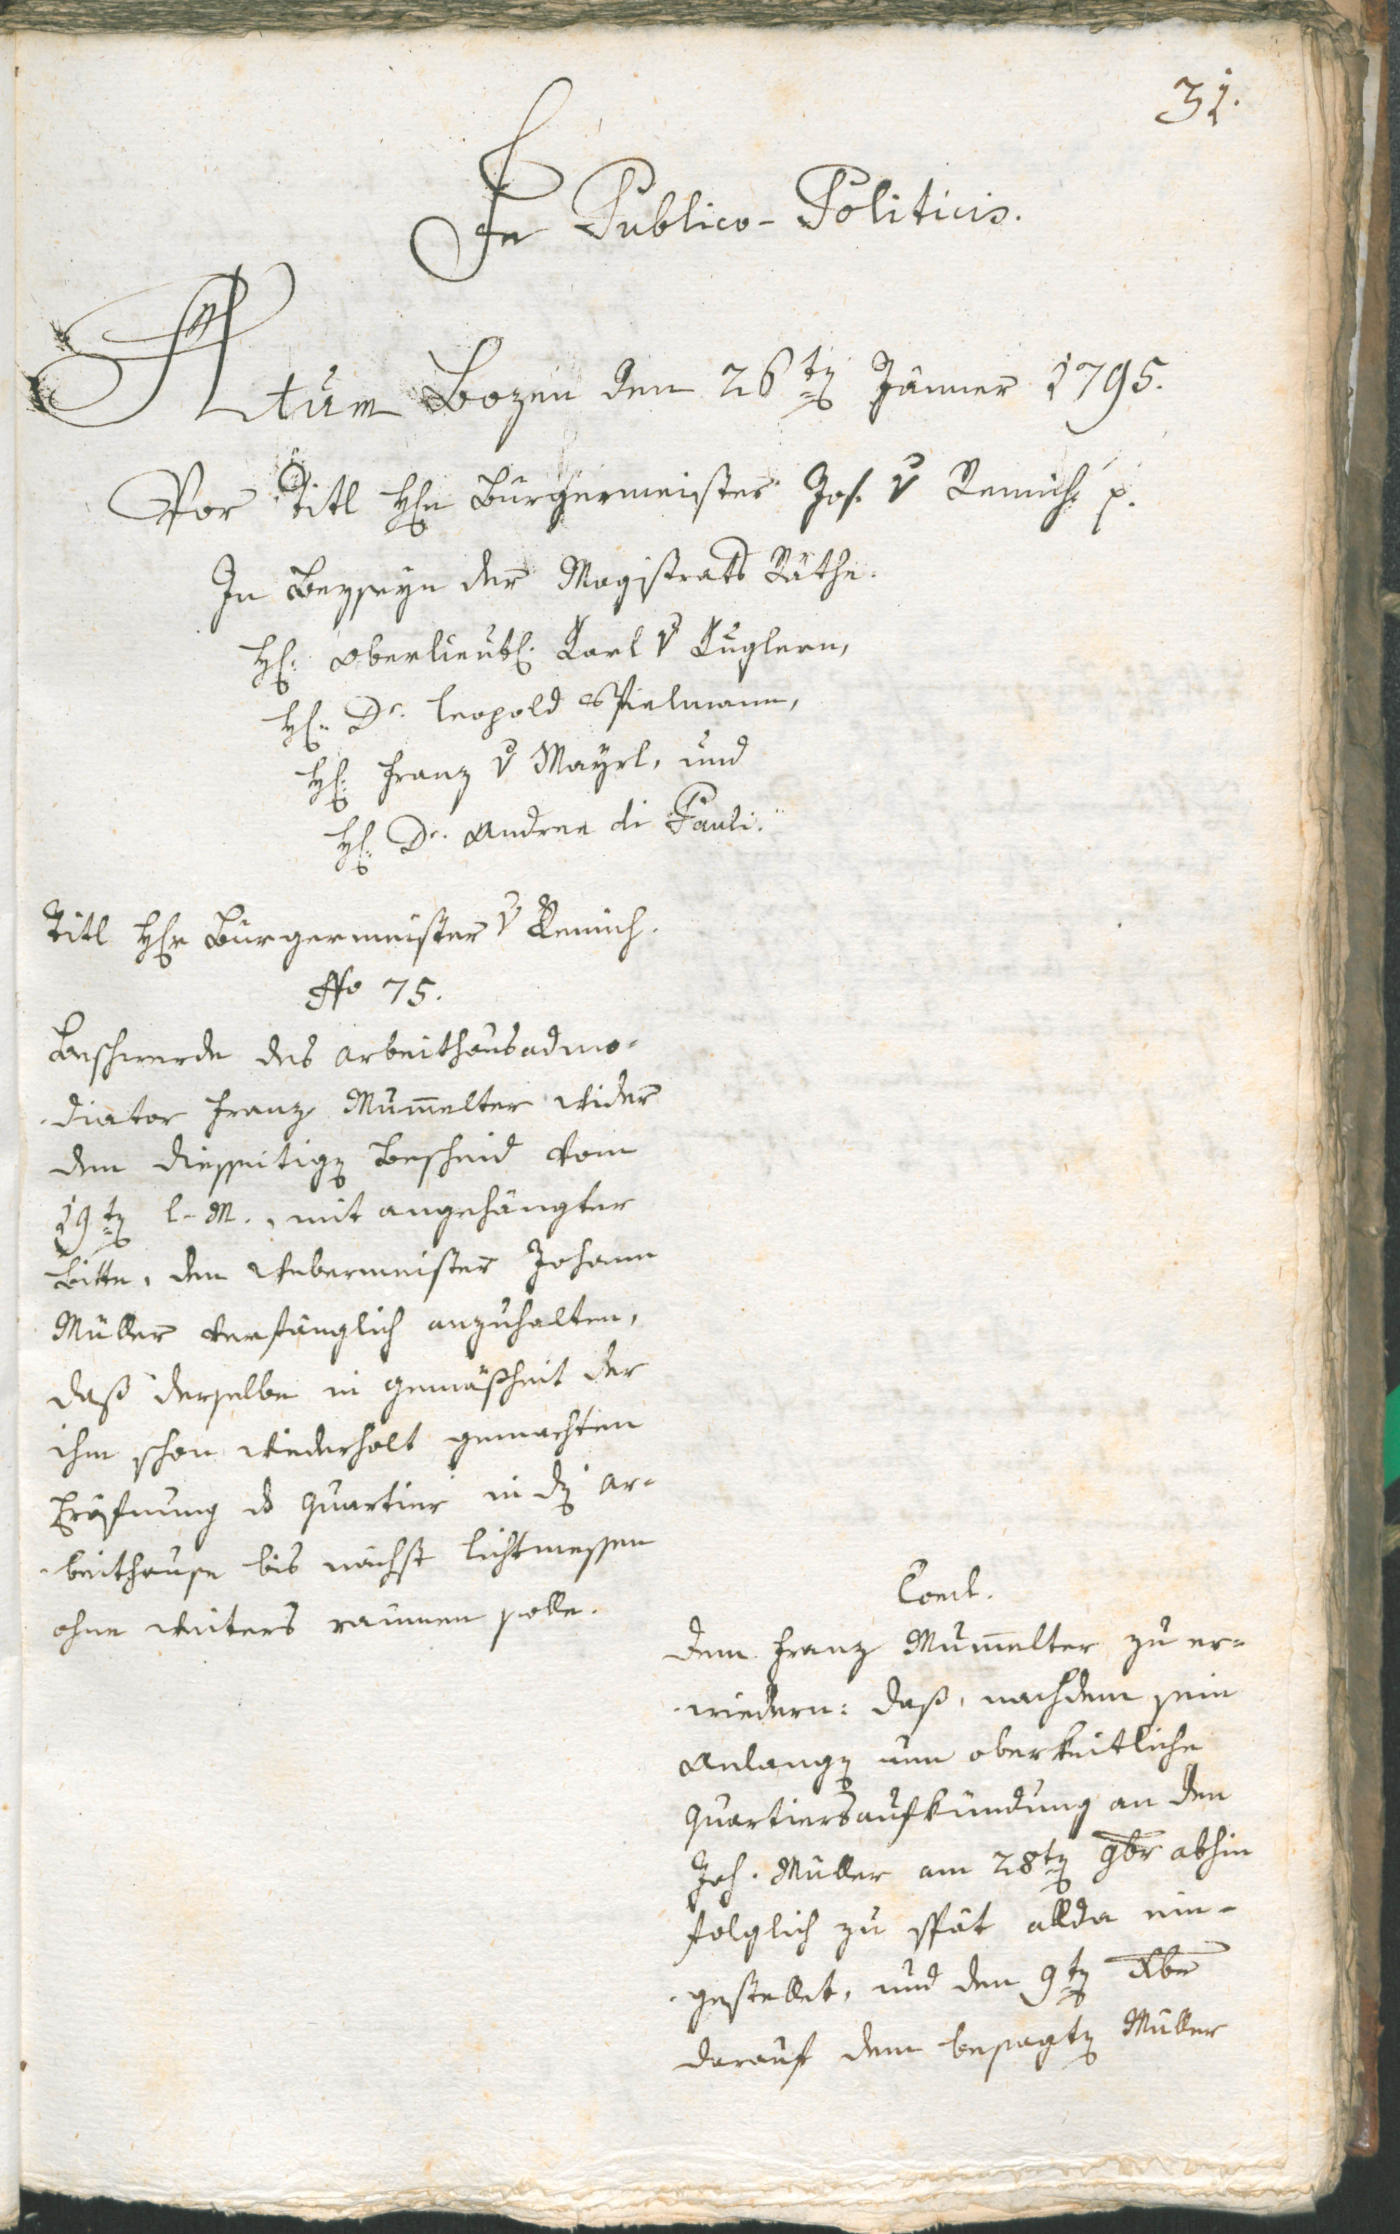 31.
In Publico-Politicis.
Actum Bozen den 26ten Jänner 1795.
Vor Titl Hrn Bürgermeister Jos. v Remich p.
In Beyseyn der Magistrats Räthe.
Hr. Oberlieut. Carl v Kuglern,
Hr. Dr. Leopold Spielmann,
Hr. Franz v Mayrl, und
Hr. Dr. Andree di Pauli.
Titl Hr Bürgermeister v Remich.
No 75.
Beschwerde des Arbeithausadmo-
diator Franz Mum̄elter wider
den diesseitigen Bescheid vom
19ten l. M., mit angehängter
Bitte, den Webermeister Johann
Müller verfänglich anzuhalten,
daß derselbe in Gemäßheit der
ihm schon wiederholt gemachten
Eröfnung ds Quartier in dem Ar-
beithause bis nächst Lichtmessen
ohne weiters raumen solle.
Concl.
Dem Franz Mum̄elter zu er-
wiedern: daß, nachdem sein
Anlangen um oberkeitliche
Quartiersaufkündung an den
Joh. Müller am 28ten 9br abhin
folglich zu spät allda ein-
gestellet, und den 9ten Xbr
darauf dem besagten Müller